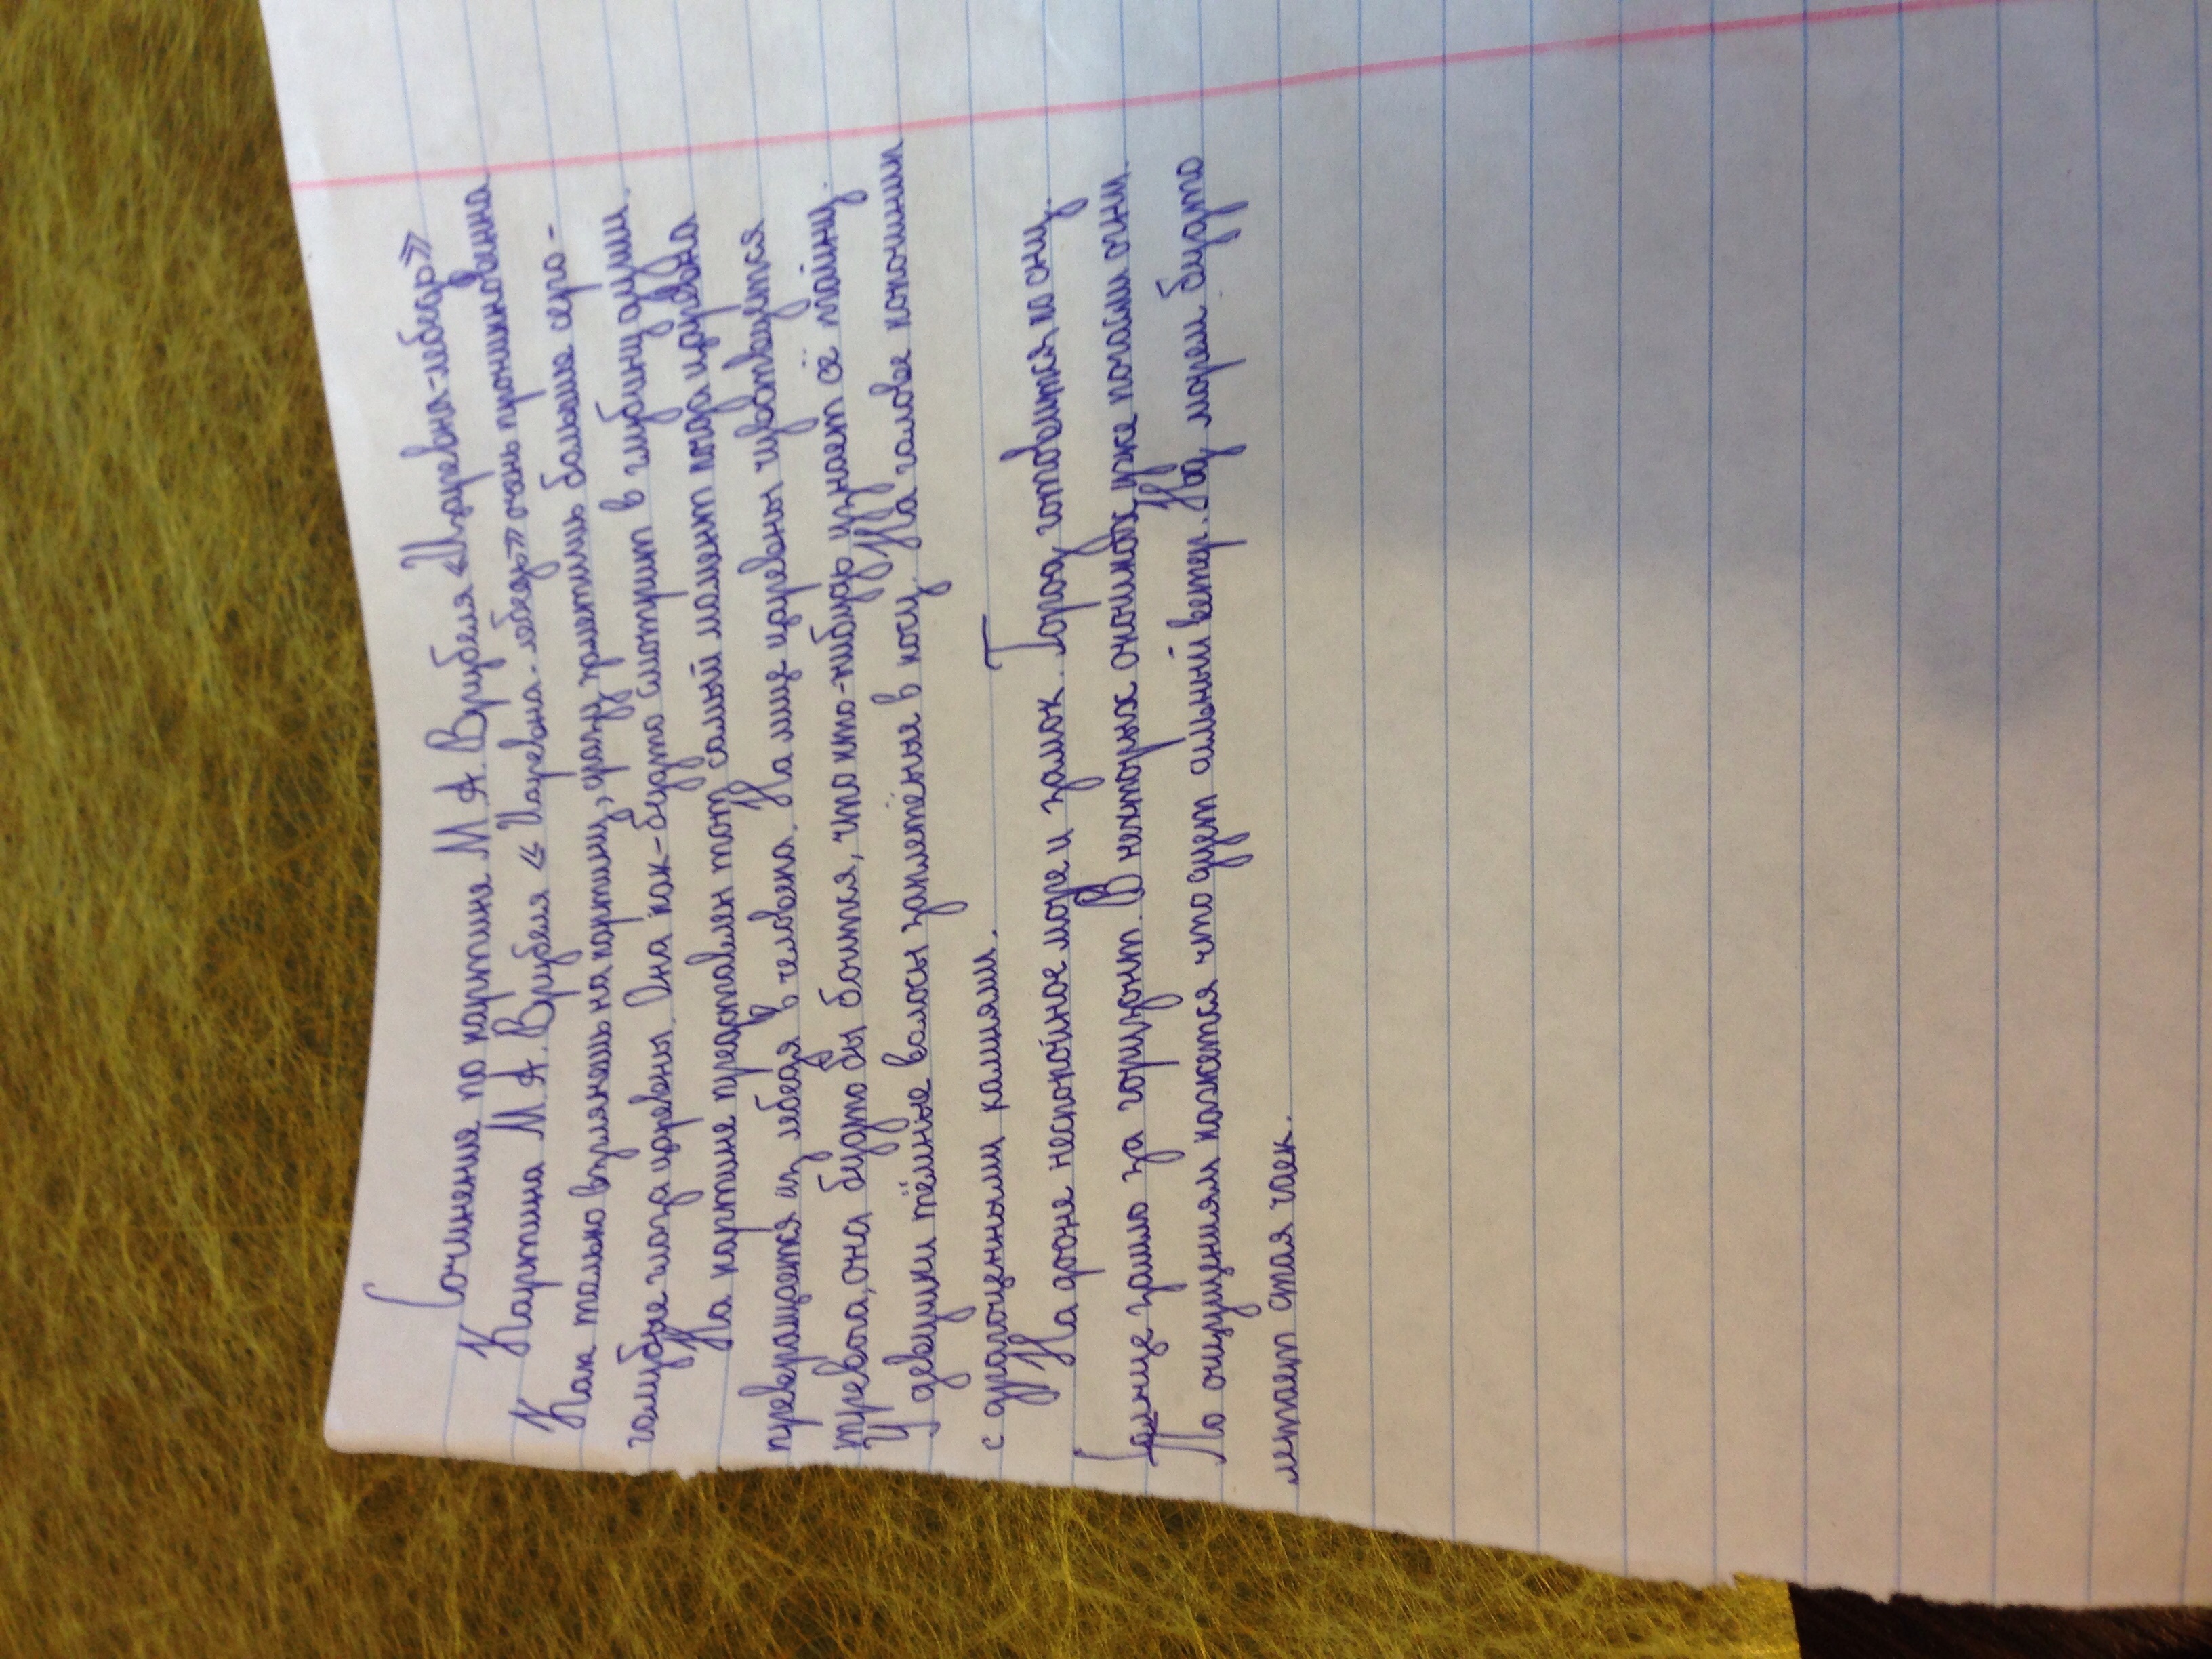 Сочинение по картине М.А. Врубеля «Царевна-лебедь»
Картина М.А. Врубеля «Царевна-лебедь» очень проникновенна
Как только взглянешь на картину, сразу приметишь большие серо-
голубые глаза царевны. Она как-будто смотрит в глубину души.
На картине представлен тот самый момент когда царевна
превращается из лебедя в человека. На лице царевны чувствуется
тревога, она будто бы боится, что кто-нибудь узнает её тайну.
У девушки тёмные волосы заплетёные в косу. На голове кокошник
с драгоценными камнями.
На фоне неспокойное море и замок. Город готовится ко сну.
Солнце зашло за горизонт. В некторых окошках уже погасли огни
По ощущениям кажется что дует сильный ветер. Над морем будто
летает стая чаек.